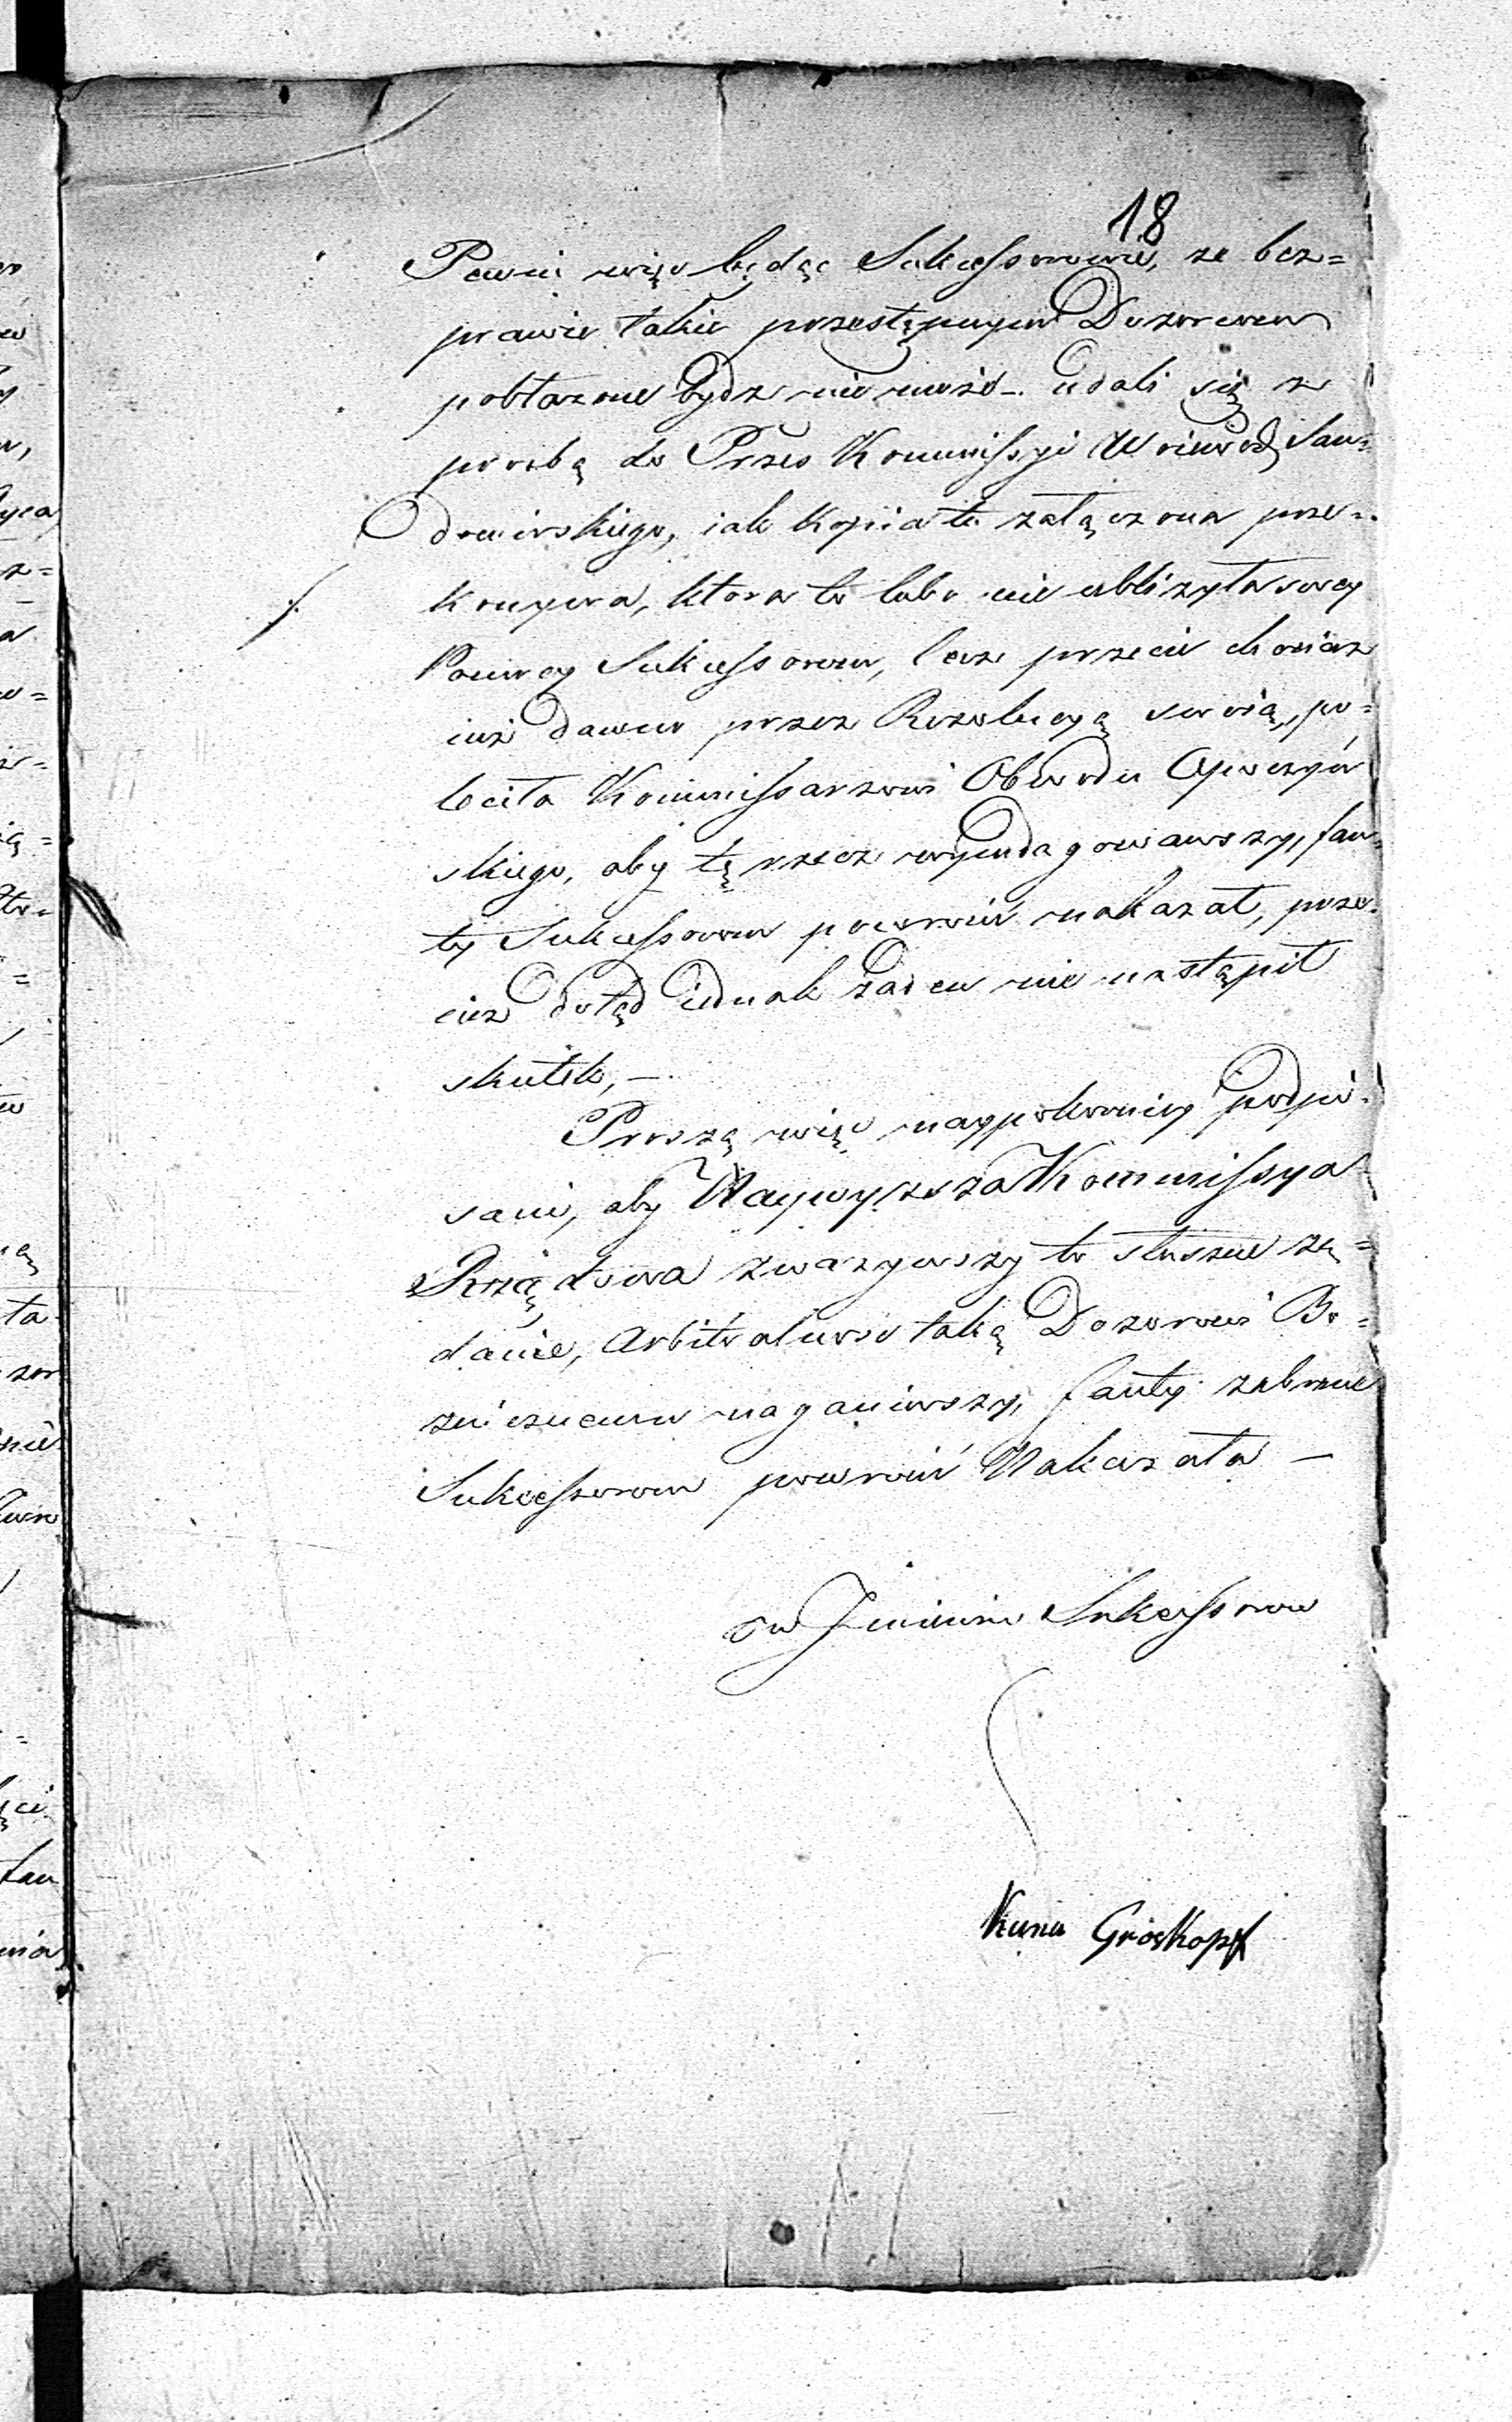 18
Pewni więc będąc Sukcessorowie, ze bez=
prawie takie przestępnym Dozorcom
pobłazone bydz nie może -. udali się z
prozbą do Prześ Kommissyi Woiewodz San=
domirskiego, iak Kopia tu załączona prze=
konywa, ktora to lubo nie ubliżyła swey
Pomocy Sukcessorom, lecz przecie chociaz
iuż dawno przez Rezolucyą swoią, po=
leciła Kommissarzowi Obwodu Opoczyń
skiego, aby tę rzecz wyindagowawszy, fan=
ty Sukcessorom powrócić nakazał, prze=
ciez dotąd iednak żaden nie nastąpił
skutek, -.
Proszą więc naypokorniey podpi=
sani, aby Naywyzsza Kommissya
Rządowa zwazywszy to słuszne żą=
danie, Arbitralność taką Dozorowi Bo=
zniczemu naganiwszy, fanty zabrane
Sukcessorom powrócić Nakazała —
w Imieniu Sukcessorow
Kuna Grioskopf